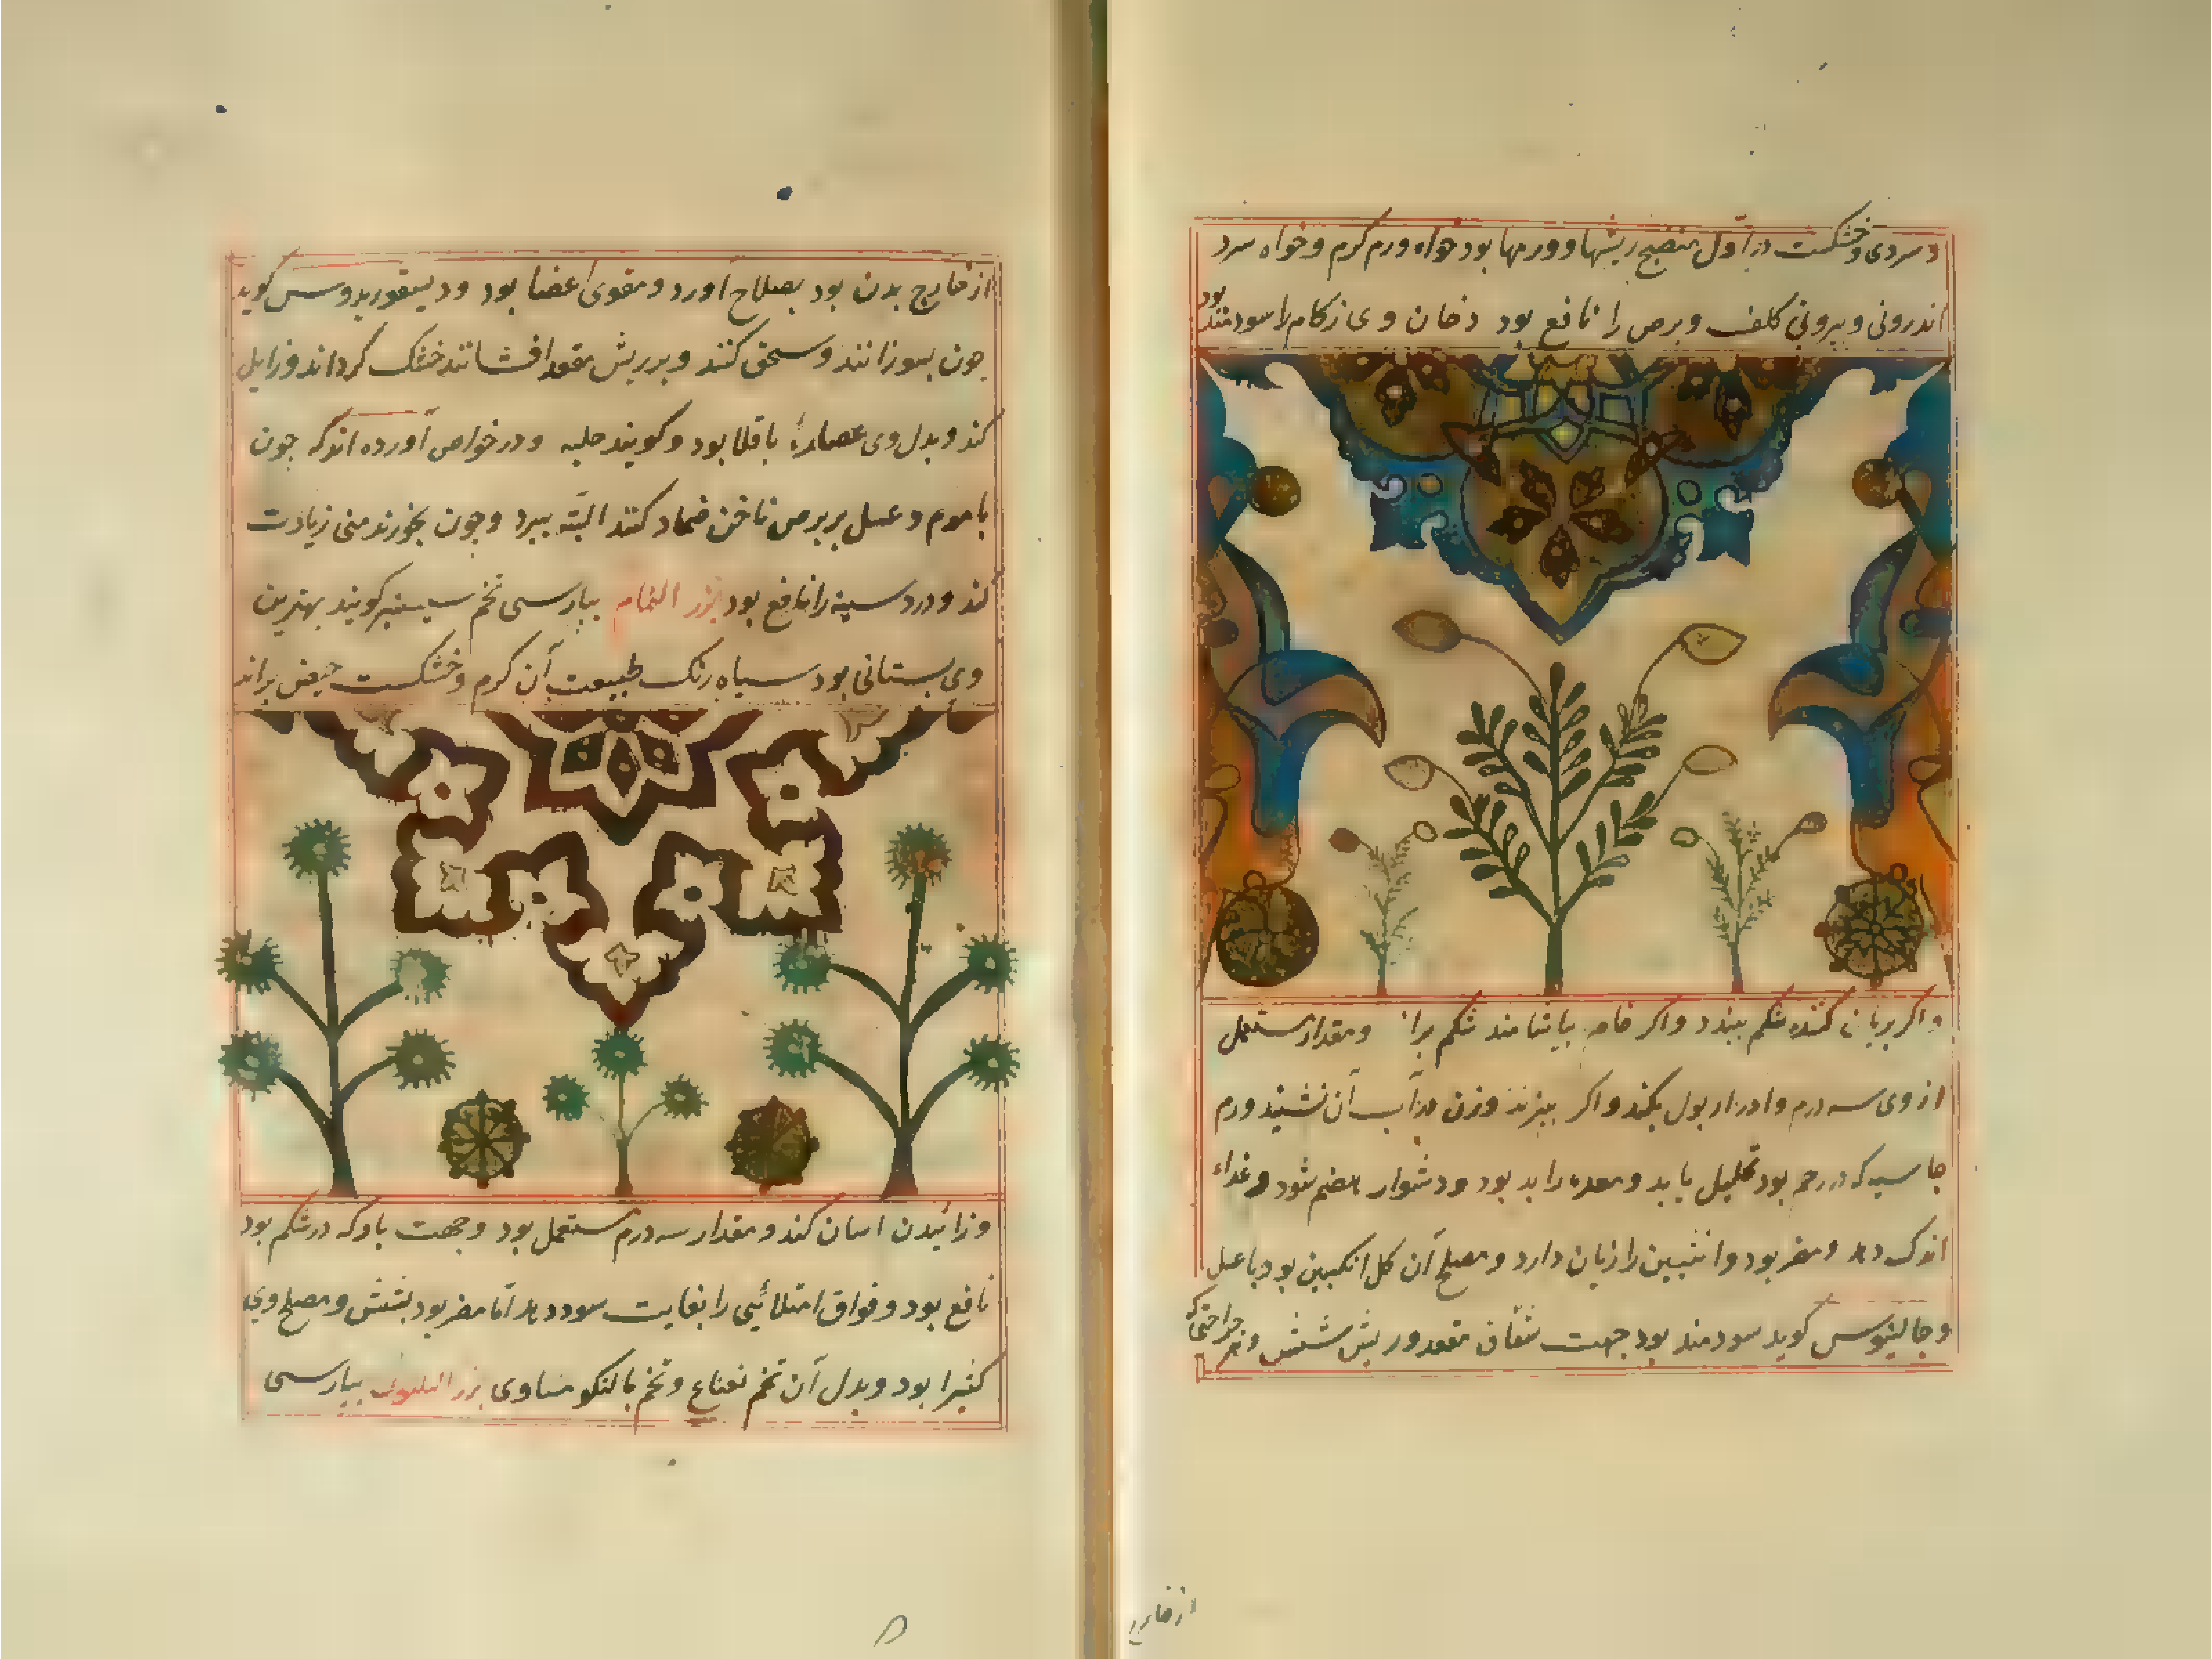 و سردی و خشکست در اول منضج ریشها و ورمها بود خواه ورم کرم و خواه سرد
اندرونی و بیرونی کلف و برص را نافع بود دخان وی زکام را سودمند بود
و اکر بریان کنند شکم ببندد و اکر خام بیاشامند شکم براند و مقدار مستعمل
از وی سه درم و ادرار بول بکند و اکر بپزند وزن در آب آن نشیند ورم
جاسیه که در رحم بود تحلیل یابد و معده را بد بود و دشوار هضم شود و غذاء
اندک دهد و مضر بود و انثیین را زیان دارد و مصلح آن کل انکبین بود یا عسل
و جالینوس کوید سودمند بود جهت شقاق مقعد و ریش شش و هر جراحتی که
از خارج
از خارج بدن بود بصلاح آورد و مقوی اعضا بود و دیسقوریدوس کوید
چون بسوزانند و سحق کنند و بر ریش مقعد افشانند خشک کرداند و زایل
کند و بدل وی عصارهٔ باقلا بود و کویند حلبه و در خواص آورده اند که چون
با موم و عسل بر برص ناخن ضماد کنند البته ببرد و چون بخورند منی زیادت
کند و درد سینه را نافع بود بزر النمام بپارسی تخم سیسنبر کویند بهترین
وی بستانی بود سیاه رنک طبیعت آن کرم و خشکست حیض براند
و زائیدن اسان کند و مقدار سه درم مستعمل بود و جهت باد که در شکم بود
نافع بود و فواق امتلائی را بغایت سود دهد اما مضر بود بشش و مصلح وی
کثیرا بود و بدل آن تخم نعناع و تخم بالنکو مساوی بزر الهلیون بپارسی